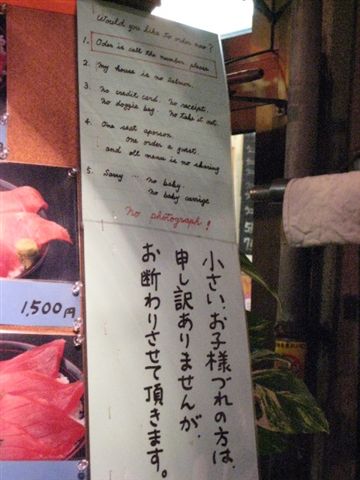 Would you like to order now?
1. Oder is call the number please
2. My house is no Salmon.
3. No credit card. No receipt.
No doggie bag. No take it out.
4. One seat aperson
One order a guest.
and all menu is no sharing
5. Sorry ... no baby.
No baby carriage
No photograph!
小さいお子様づれの方は、
申し訳ありませんが、
お断わりさせて頂きます。
1,500円